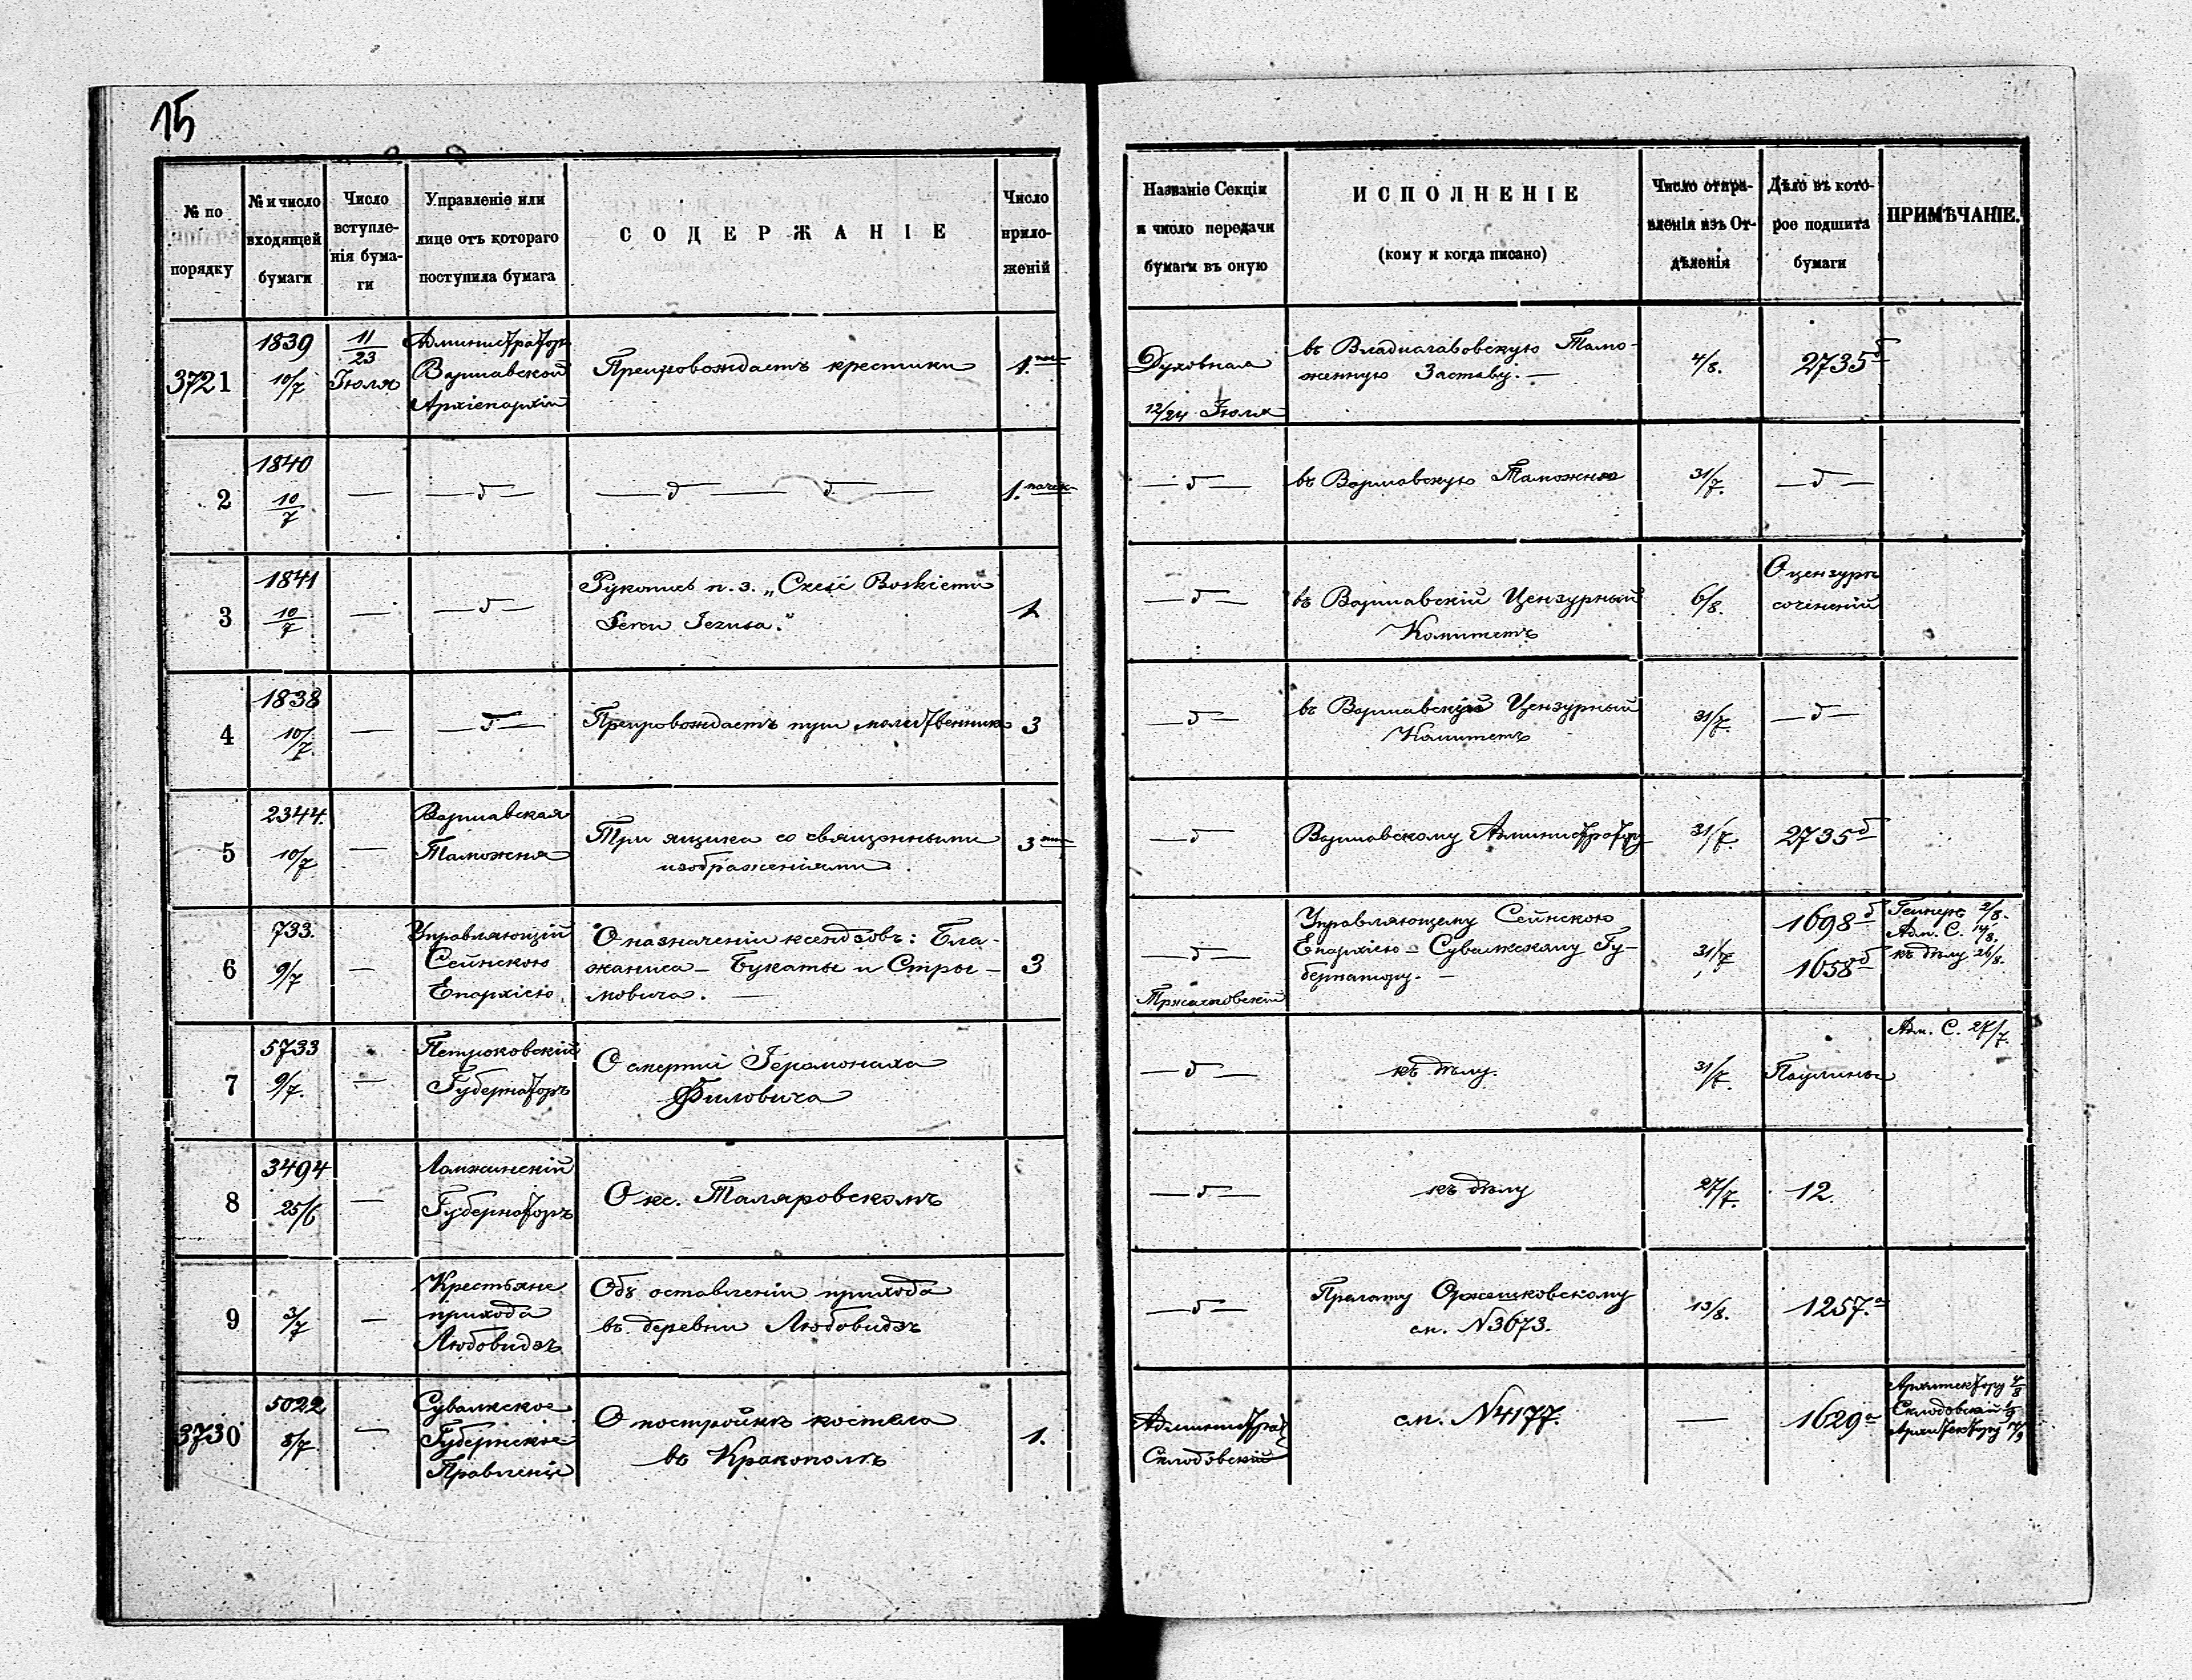 15
№ по порядку
№ и число входящей бумаги
Число вступле-нія бума-ги
Управленіе или лице отъ котораго поступила бумага
СОДЕРЖАНІЕ
Число прило-женій
Названіе Секціи и число передачи бумаги въ оную
ИСПОЛНЕНІЕ
(кому и когда писано)
Число отпра-вленія изъ От-дѣленія
Дѣло въ кото-рое подшита бумаги
ПРИМѢЧАНІЕ.
3721
1839
10/7
11/23 Іюля
Администраторъ
Варшавской
Архіепархіи
Препровождаетъ крестики
1.
Духовная
12/24 Іюля
въ Владиславовскую Тамо-
женную Заставу. —
4/8.
2735 б
2
1840
10/7
—
— д —
— д — д —
1. пачек
— д —
въ Варшавскую Таможню
31/7.
— д —
3
1841
10/7
—
— д —
Рукопись п. з. „Cześć Boskiemu
Sercu Jezusa."
1
— д —
въ Варшавскій Цензурный
Комитетъ
6/8.
О цензурѣ
сочиненій
4
1838
10/7.
—
— д —
Препровождаетъ при молитвенникѣ
3
— д —
въ Варшавскій Цензурный
Комитетъ
31/7.
— д —
5
2344.
10/7
—
Варшавская
Таможня
Три ящика со священными
изображеніями.
3
— д
Варшавскому Администратору
31/7.
2735 б
6
733.
9/7
—
Управляющій
Сейнскою
Епархіею
О назначеніи ксендзовъ: Бла-
жаниса — Букаты и Стры-
мовича. —
3
— д —
Управляющему Сейнскою
Епархіею — Сувалкскому Гу-
бернатору. —
31/7
1698 б
1658 б
2/8.
Адм. С. 14/8.
къ дѣлу 26/8.
7
5733
9/7.
—
Петроковскій
Губернаторъ
О смерти Іеромонаха
Филовича
— д —
къ дѣлу.
31/7.
Паулины
Адм. С. 27/7.
8
3494
25/6
—
Ломжинскій
Губернаторъ
О кс. Таляровскомъ
— д —
къ дѣлу
27/7.
12.
9
3/7
—
Крестьяне
прихода
Любовидзъ
Объ оставленіи прихода
въ деревни Любовидзъ
— д —
Прелату Оржешковскому
см. N 3673.
13/8.
1257. а
3730
5022
8/7
—
Сувалкское
Губернское
Правленіе
О постройкѣ костела
въ Кракополѣ
1.
Склодовскій
см. N 4177.
—
1629 а
Архитектору
Склодовскій
Архитектору